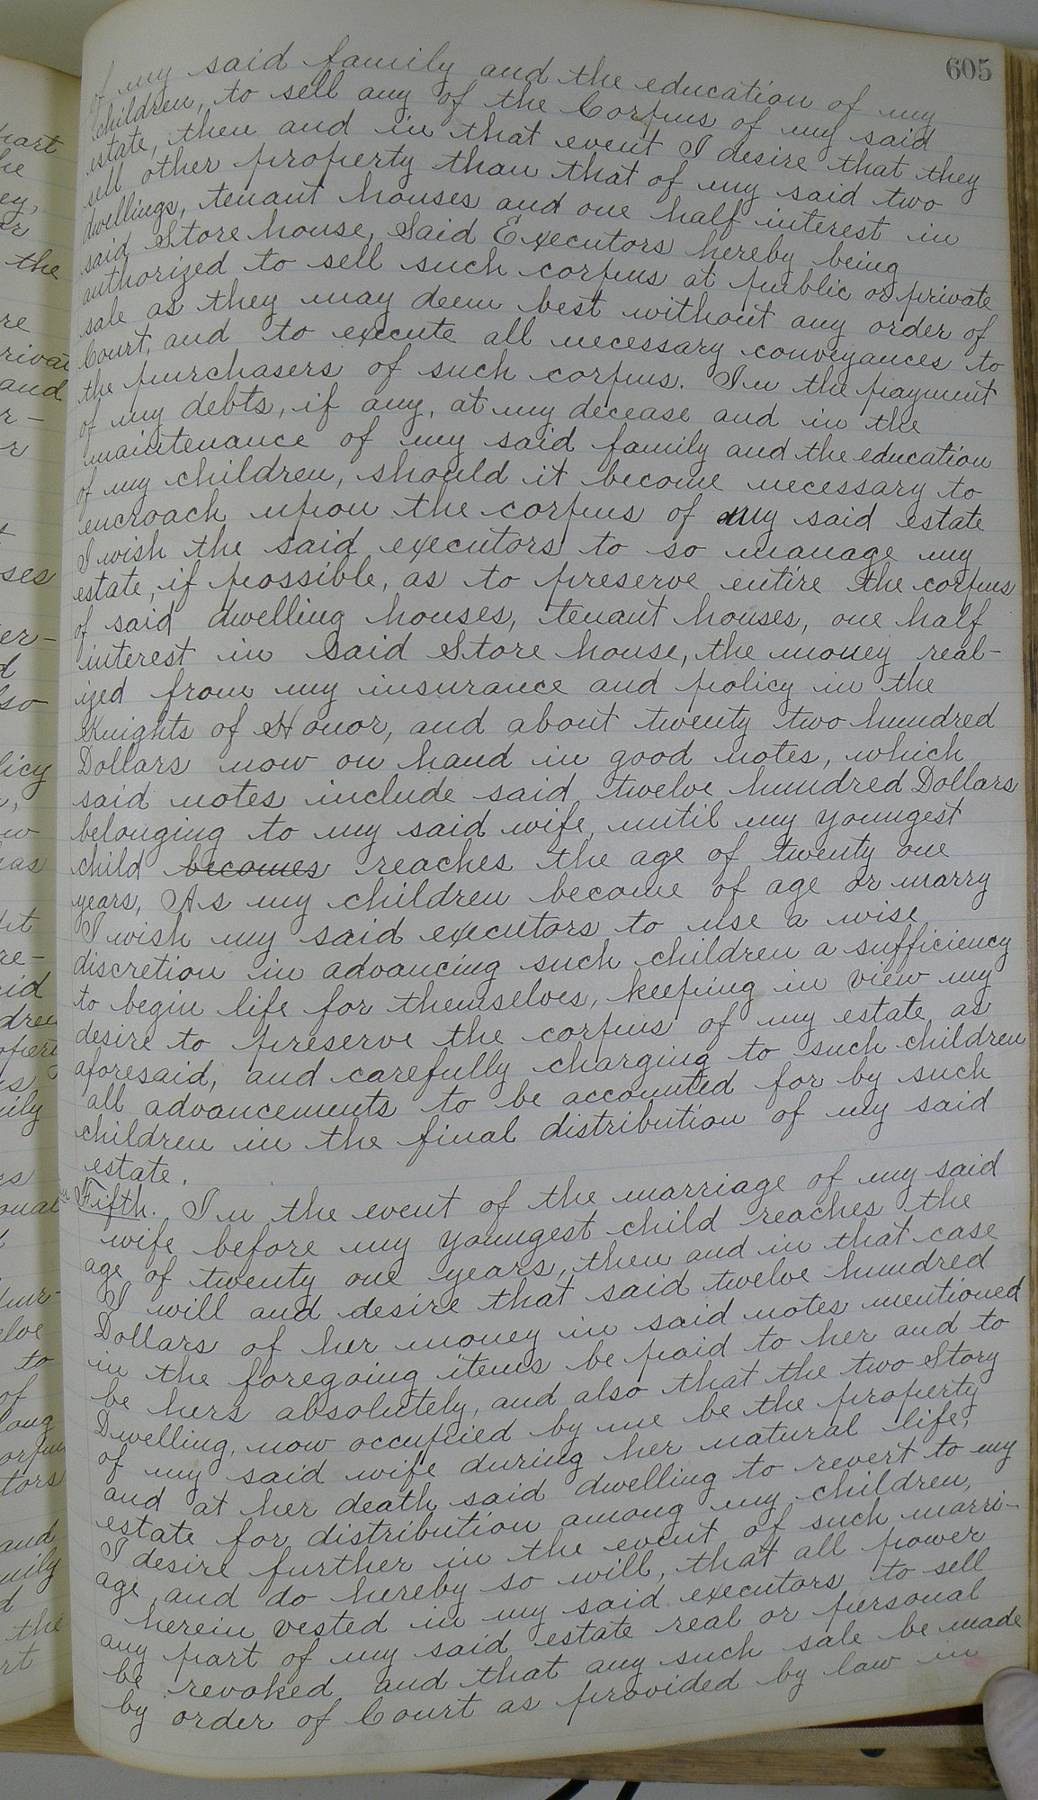 605
of my said family and the education of my
children, to sell any of the Corpus of my said
estate, then and in that event I desire that they
sell other property than that of my said two
dwellings, tenant houses and one half interest in
said Store house, Said Executors hereby being
authorized to sell such corpus at public or private
sale as they may deem best without any order of
Court, and to execute all necessary conveyances to
the purchasers of such corpus. In the payment
of my debts, if any, at my decease and in the
maintenance of my said family and the education
of my children, should it become necessary to
encroach upon the corpus of my said estate
I wish the said executors to so manage my
estate, if possible, as to preserve entire the corpus
of said dwelling houses, tenant houses, one half
interest in said Store house, the money real-
ized from my insurance and policy in the
Knights of Honor, and about twenty two hundred
Dollars now on hand in good notes, which
said notes include said twelve hundred Dollars
belonging to my said wife, until my youngest
child becomes reaches the age of twenty one
years, As my children become of age or marry
I wish my said executors to use a wise
discretion in advancing such children a sufficiency
to begin life for themselves, keeping in view my
desire to preserve the corpus of my estate as
aforesaid, and carefully charging to such children
all advancements to be accounted for by such
children in the final distribution of my said
estate.
Fifth. In the event of the marriage of my said
wife before my youngest child reaches the
age of twenty one years, then and in that case
I will and desire that said twelve hundred
Dollars of her money in said notes mentioned
in the foregoing items be paid to her and to
be hers absolutely, and also that the two Story
Dwelling, now occupied by me be the property
of my said wife during her natural life,
and at her death said dwelling to revert to my
estate for distribution among my children,
I desire further in the event of such marri-
age and do hereby so will, that all power
herein vested in my said executors to sell
any part of my said estate real or personal
be revoked and that any such sale be made
by order of Court as provided by law in